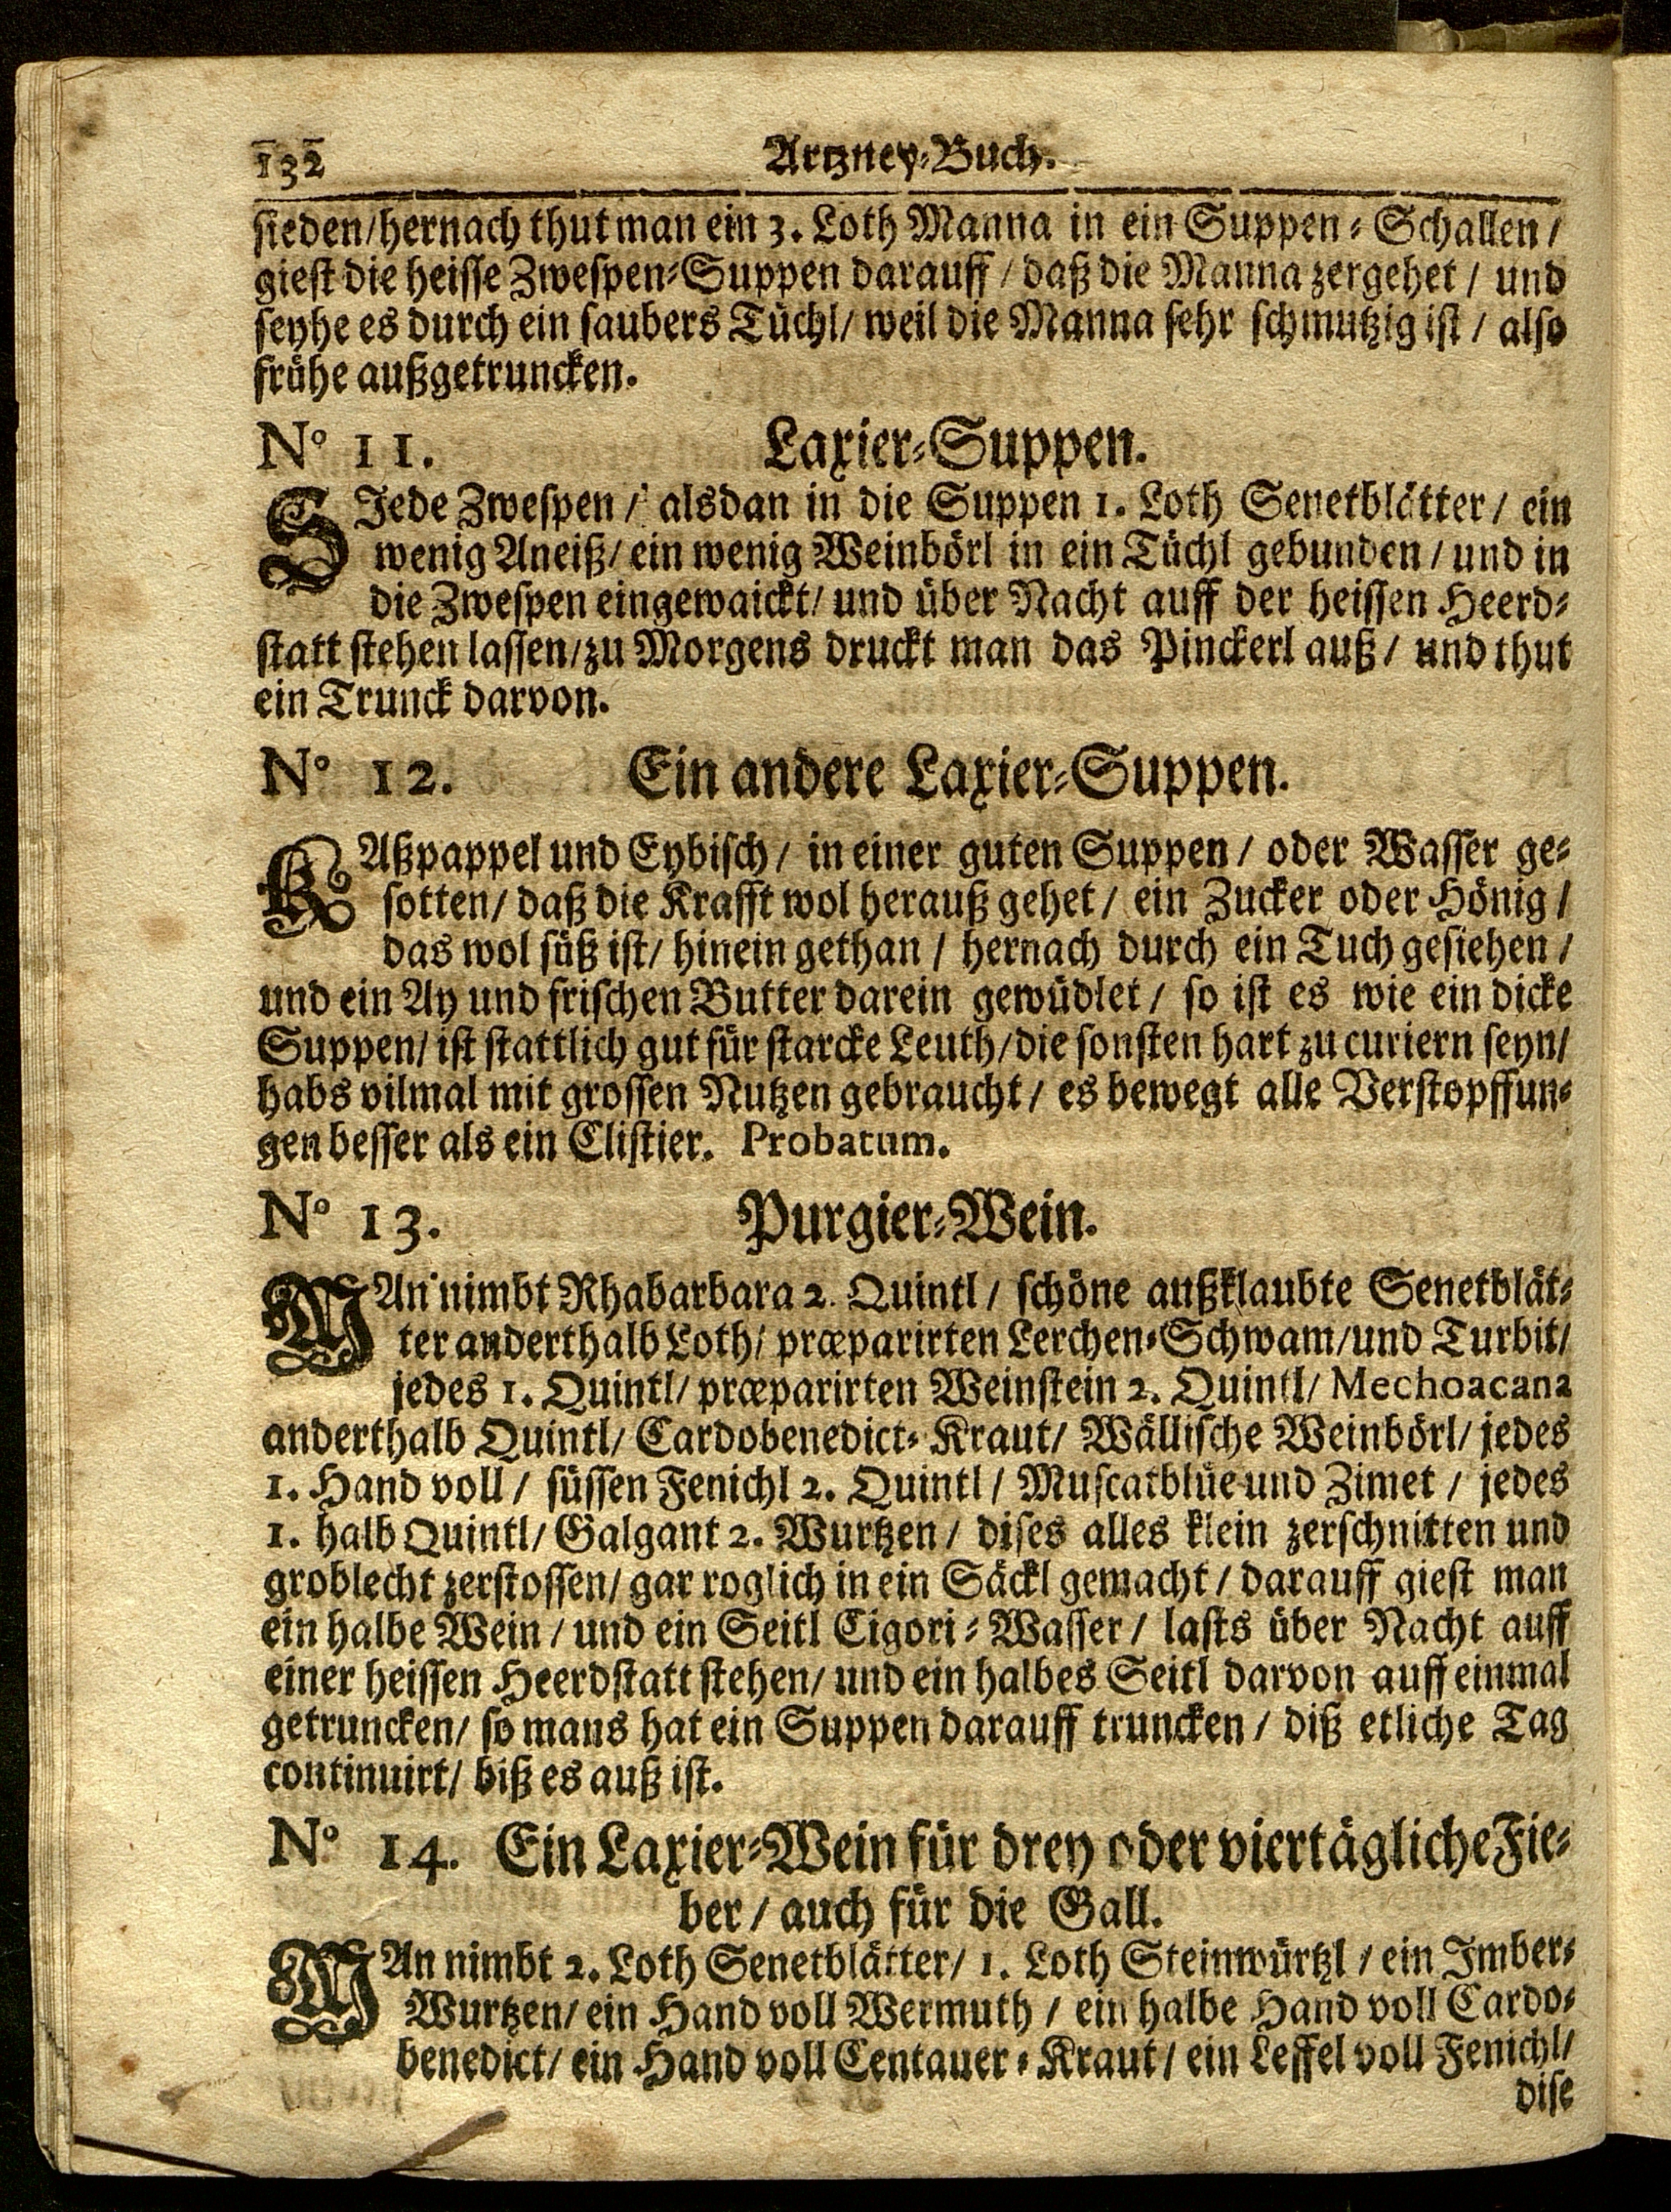 132 Artzney-Buch.
sieden/hernach thut man ein 3. Loth Manna in ein Suppen-Schallen/
giest die heisse Zwespen-Suppen darauff/ daß die Manna zergehet/ und
seyhe es durch ein saubers Tüchl/ weil die Manna sehr schmutzig ist/ also
frühe außgetruncken.
N° 11. Laxier-Suppen.
SIede Zwespen/ alsdan in die Suppen 1. Loth Senetblätter/ ein
wenig Aneiß/ ein wenig Weinbörl in ein Tüchl gebunden/ und in
die Zwespen eingewaickt/ und über Nacht auff der heissen Heerd-
statt stehen lassen/zu Morgens druckt man das Pinckerl auß/ und thut
ein Trunck darvon.
N° 12. Ein andere Laxier-Suppen.
KAßpappel und Eybisch/ in einer guten Suppen/ oder Wasser ge-
sotten/ daß die Krafft wol herauß gehet/ ein Zucker oder Hönig/
das wol süß ist/ hinein gethan/ hernach durch ein Tuch gesiehen/
und ein Ay und frischen Butter darein gewüdlet/ so ist es wie ein dicke
Suppen/ ist stattlich gut für starcke Leuth/die sonsten hart zu curiern seyn/
habs vilmal mit grossen Nutzen gebraucht/ es bewegt alle Verstopffun-
gen besser als ein Clistier. Probatum.
N° 13. Purgier-Wein.
MAn nimbt Rhabarbara 2. Quintl/ schöne außklaubte Senetblät-
ter anderthalb Loth/ præparirten Lerchen-Schwam/und Turbit/
jedes 1. Quintl/ præparirten Weinstein 2. Quintl/ Mechoacana
anderthalb Quintl/ Cardobenedict-Kraut/ Wällische Weinbörl/ jedes
1. Hand voll/ süssen Fenichl 2. Quintl/ Muscatblüe und Zimet/ jedes
1. halb Quintl/ Galgant 2. Wurtzen/ dises alles klein zerschnitten und
groblecht zerstossen/ gar roglich in ein Säckl gemacht/ darauff giest man
ein halbe Wein/ und ein Seitl Cigori-Wasser/ lasts über Nacht auff
einer heissen Heerdstatt stehen/ und ein halbes Seitl darvon auff einmal
getruncken/ so mans hat ein Suppen darauff truncken/ diß etliche Tag
continuirt/ biß es auß ist.
N° 14. Ein Laxier-Wein für drey oder viertägliche Fie-
ber/ auch für die Gall.
MAn nimbt 2. Loth Senetblätter/ 1. Loth Steinwürtzl/ ein Imber-
Wurtzen/ ein Hand voll Wermuth/ ein halbe Hand voll Cardo-
benedict/ ein Hand voll Centauer-Kraut/ ein Leffel voll Fenichl/
dise